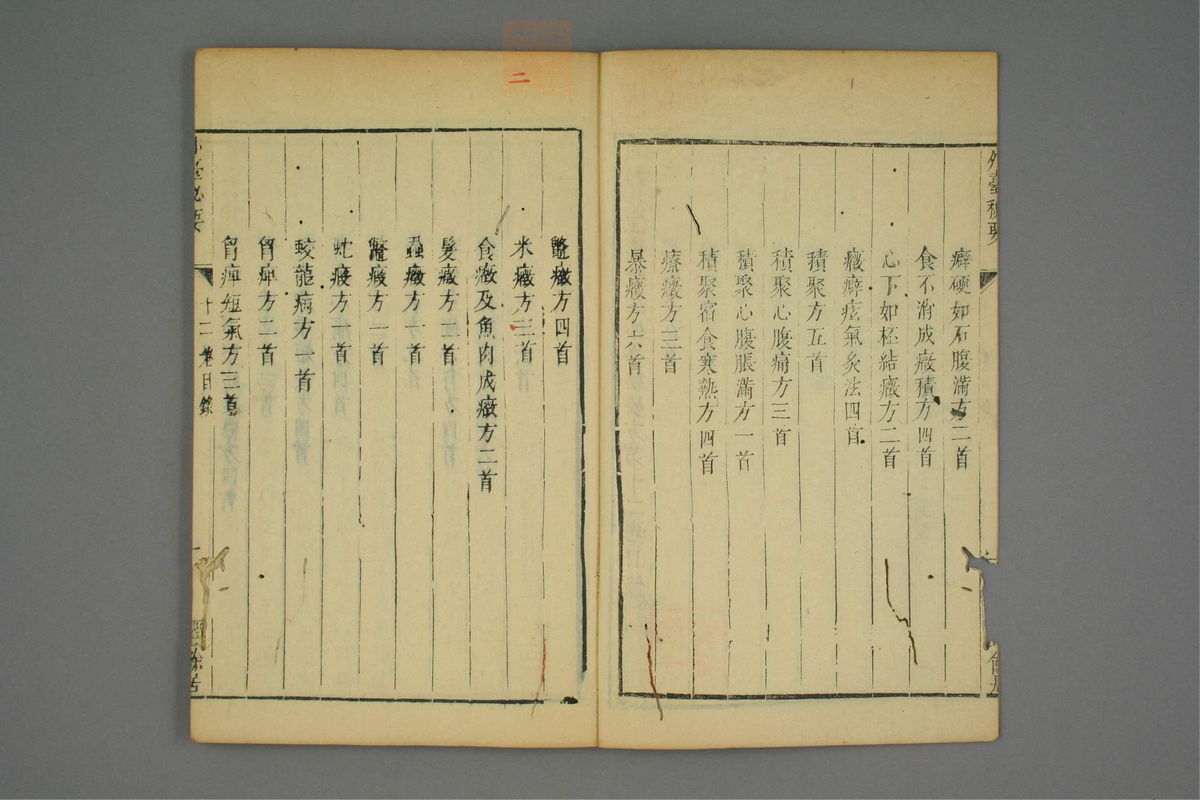 外臺秘要
癖硬如石腹滿方二首
食不消成癥積方四首
心下如杯結癥方二首
癥癖痃氣灸法四首
積聚方五首
積聚心腹痛方三首
積聚心腹脹滿方一首
積聚宿食寒熱方四首
療癥方三首
暴癥方六首
二
鼈癥方四首
米癥方三首
食癥及魚肉成癥方二首
髮癥方二首
蝨癥方一首
鼈瘕方一首
蛇瘕方一首
蛟龍病方一首
胷痺方二首
胷痺短氣方三首
臺秘要
十二卷目錄
經餘居